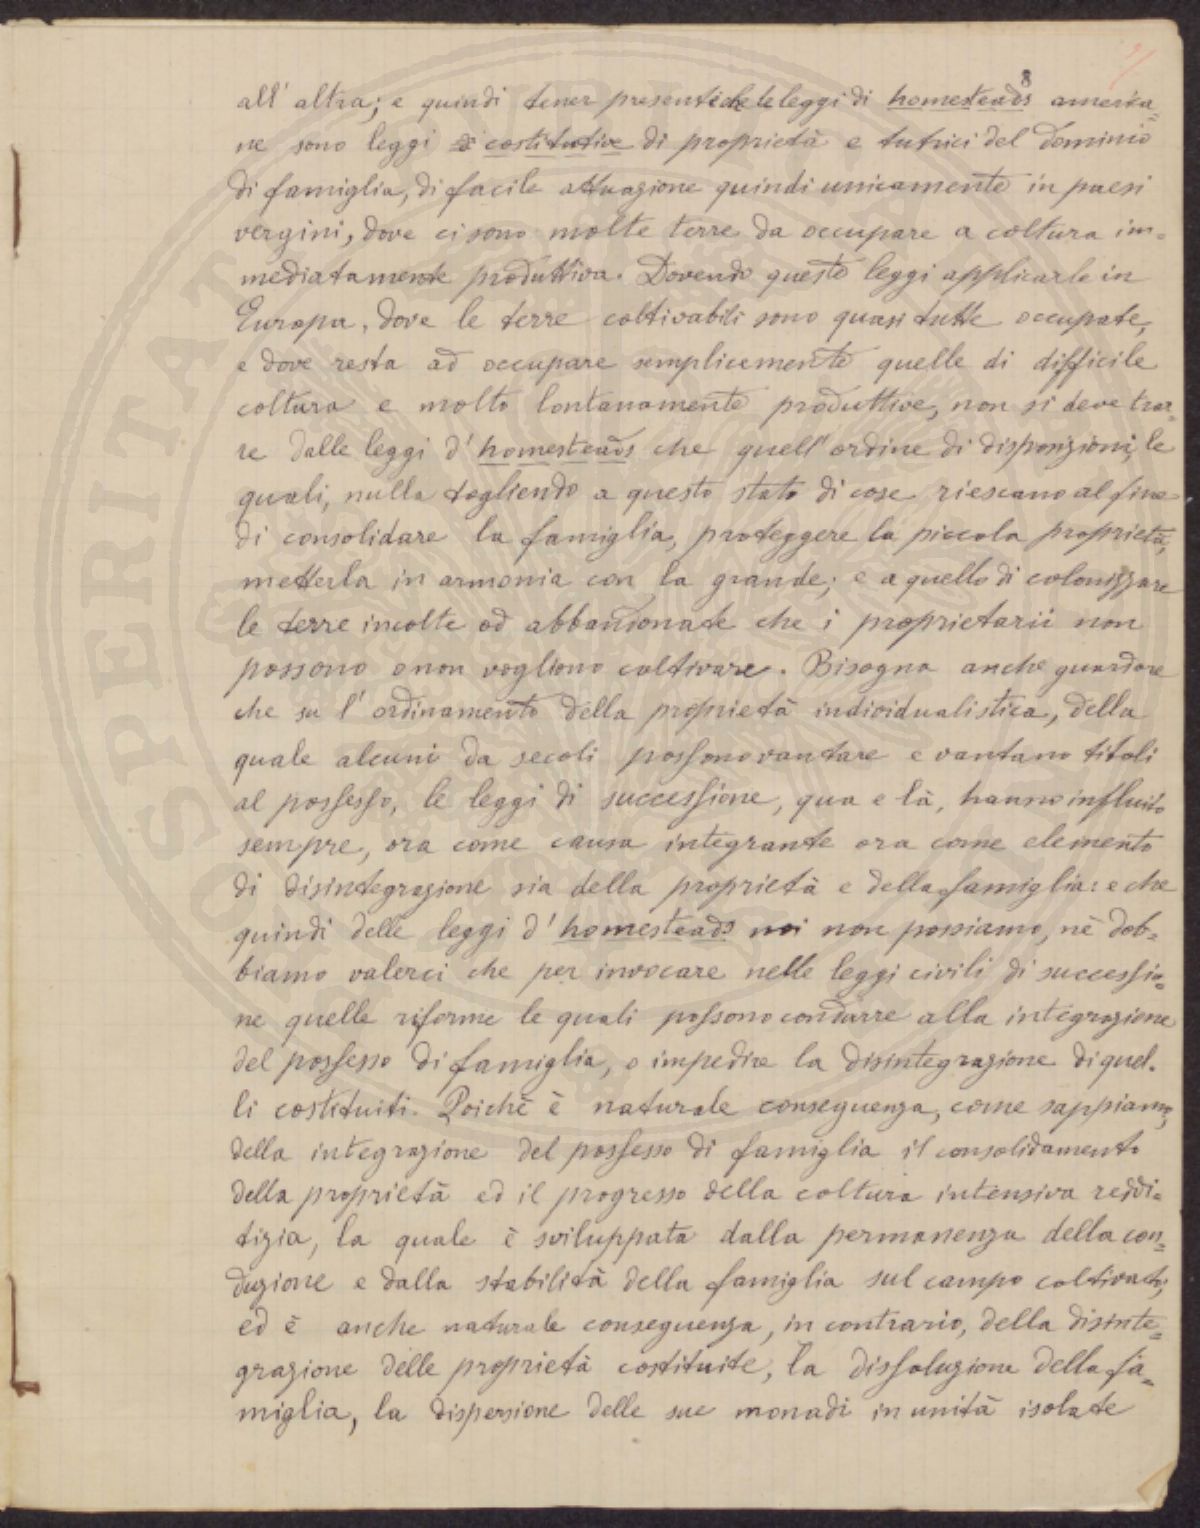 8
all' altra; e quindi tener presente che le leggi di homesteads america-
ne sono leggi costitutive di proprietà e tutrici del dominio
di famiglia, di facile attuazione quindi unicamente in paesi
vergini, dove ci sono molte terre da occupare a coltura im-
mediatamente produttiva. Dovendo queste leggi applicarle in
Europa, dove le terre coltivabili sono quasi tutte occupate,
e dove resta ad occupare semplicemente quelle di difficile
coltura e molto lontanamente produttive, non si deve trar-
re dalle leggi d' homesteads che quell' ordine di disposizioni, le
quali, nulla togliendo a questo stato di cose riescano al fine
di consolidare la famiglia, proteggere la piccola proprietà,
metterla in armonia con la grande; e a quello di colonizzare
le terre incolte od abbandonate che i proprietarii non
possono o non vogliono coltivare. Bisogna anche guardare
che su l' ordinamento della proprietà individualistica, della
quale alcuni da secoli possono vantare e vantano titoli
al possesso, le leggi di successione, qua e là, hanno influito
sempre, ora come causa integrante ora come elemento
di disintegrazione sia della proprietà e della famiglia: e che
quindi delle leggi d' homesteads noi non possiamo, nè dob-
biamo valerci che per invocare nelle leggi civili di successio-
ne quelle riforme le quali possono condurre alla integrazione
del possesso di famiglia, o impedire la disintegrazione di quel-
li costituiti. Poichè è naturale conseguenza, come sappiamo,
della integrazione del possesso di famiglia il consolidamento
della proprietà ed il progresso della coltura intensiva reddi-
tizia, la quale è sviluppata dalla permanenza della con-
duzione e dalla stabilità della famiglia sul campo coltivato;
ed è anche naturale conseguenza, in contrario, della disinte-
grazione delle proprietà costituite, la dissoluzione della fa-
miglia, la dispersione delle sue monadi in unità isolate